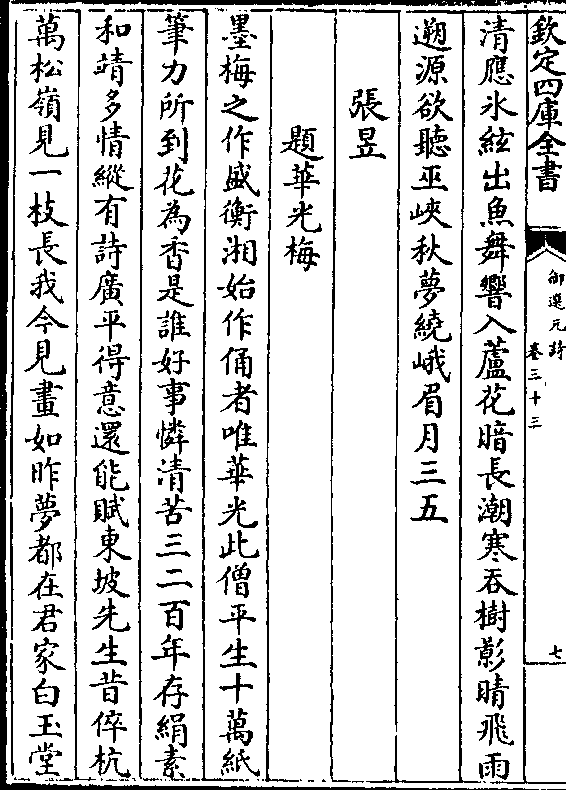 欽定四庫全書
御選元詩
卷三十三
七
清應氷絃出魚舞響入蘆花暗長潮寒吞樹影晴飛雨
遡源欲聽巫峽秋夢繞峨眉月三五
張昱
題華光梅
墨梅之作盛衡湘始作俑者唯華光此僧平生十萬紙
筆力所到花為香是誰好事憐清苦三二百年存絹素
和靖多情縱有詩廣平得意還能賦東坡先生昔倅杭
萬松嶺見一枝長我今見畫如昨夢都在君家白玉堂